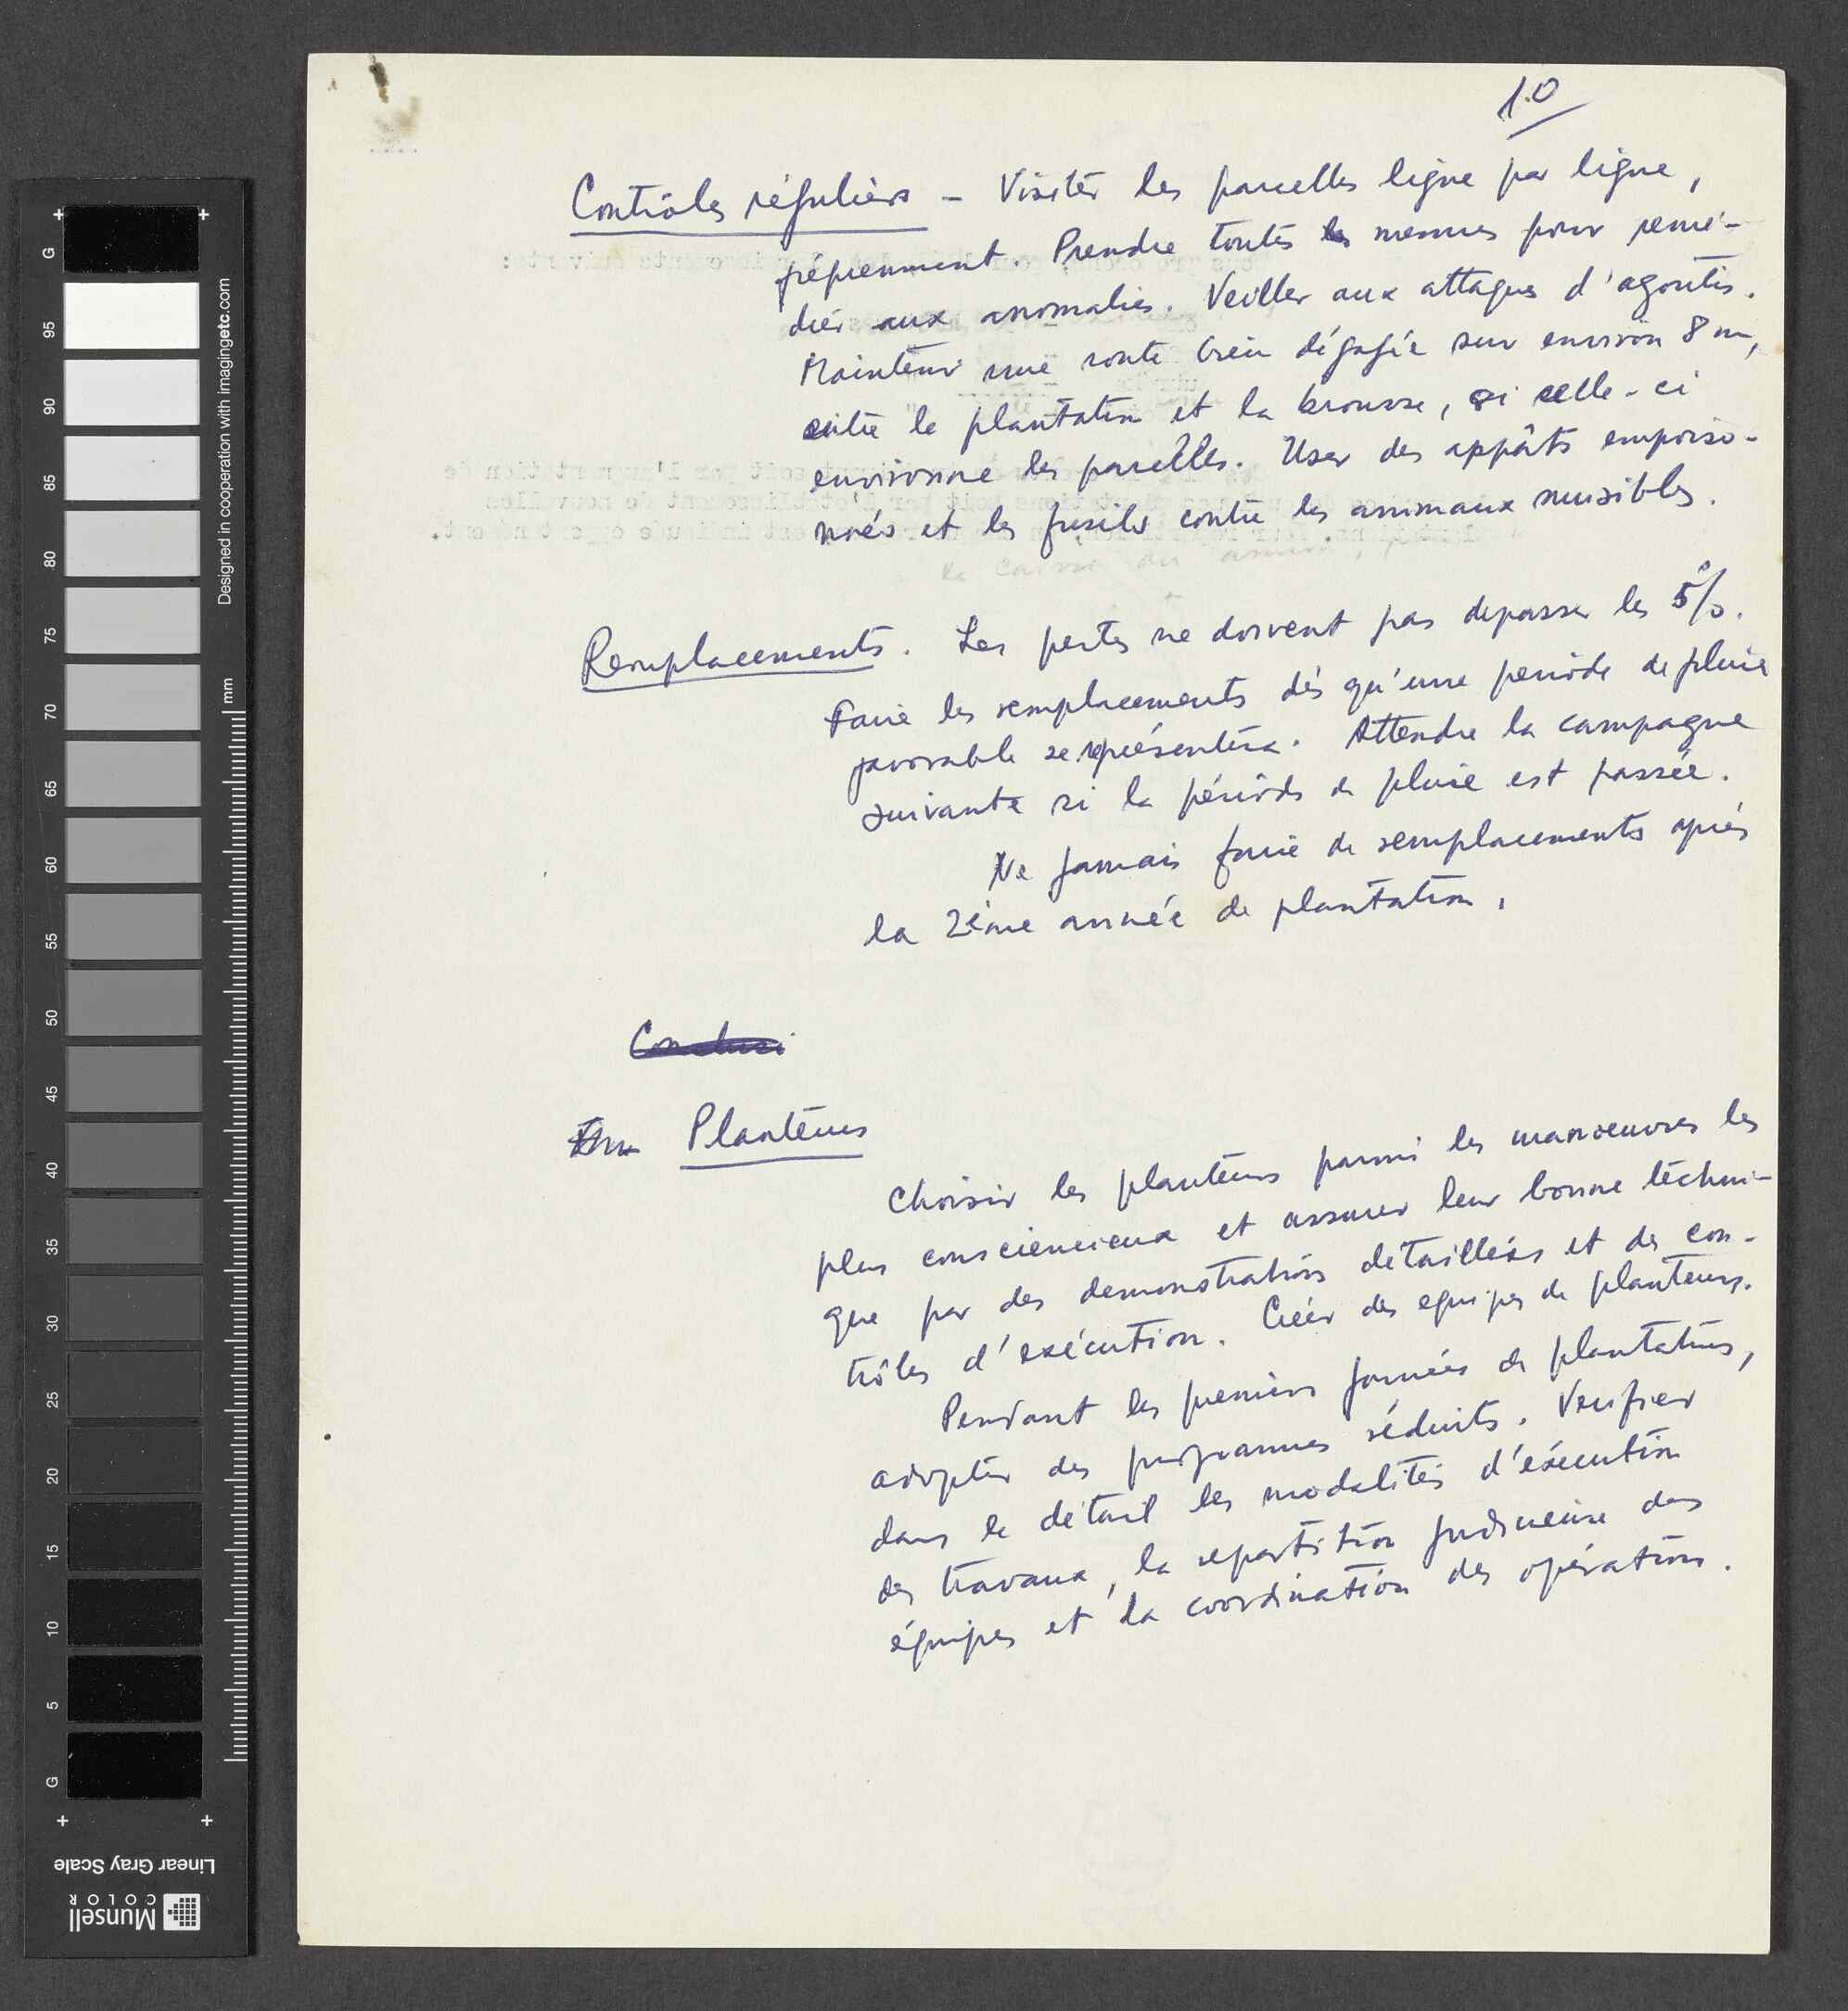 10
Contrôles réguliers - Visiter les parcelles ligne par ligne,
fréquemment. Prendre toutes les mesures pour remé-
dier aux anomalies. Veiller aux attaques d'agoutis.
Maintenir une route bien dégagée sur environ 8 m,
entre la plantation et la brousse, si celle-ci
environne les parcelles. User des appâts empoiso-
nnés et les fusils contre les animaux nuisibles.
Remplacements. Les pertes ne doivent pas depasser les 5%.
Faire les remplacements dès qu'une période de pluie
favorable se représentera. Attendre la campagne
suivante si la période de pluie est passée.
Ne jamais faire de remplacements après
la 2ème année de plantation.
Conclusi
Planteurs
Choisir les planteurs parmi les manoeuvres les
plus consciencieux et assurer leur bonne techni-
que par des demonstrations détaillées et des con-
trôles d'exécution. Créer des equipes de planteurs.
Pendant les premières journées de plantations,
adopter des programmes réduits. Verifier
dans le détail les modalités d'exécution
des travaux, la repartition judicieuse des
équipes et la coordination des opérations.
G
95
90
85
80
75
70
65
60
55
50
45
40
35
30
25
20
15
10
5
G
mm
Designed in cooperation with imagingetc.com
Linear Gray Scale
Munsell
COLOR